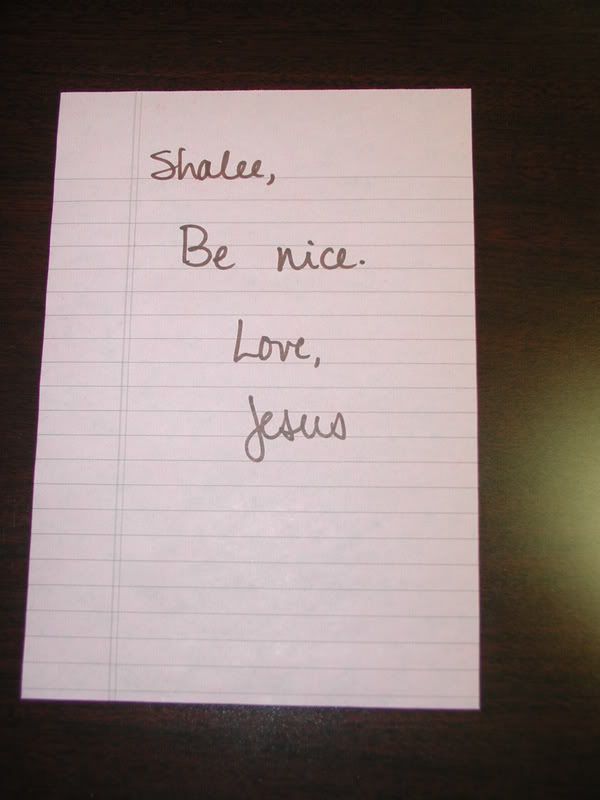 Shalee,
Be nice.
Love,
Jesus